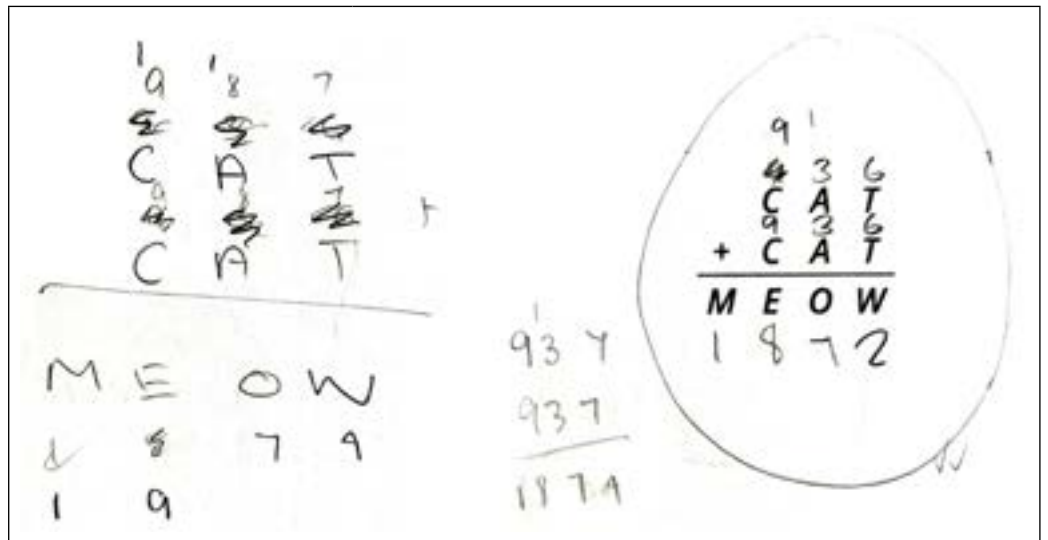 1 1
9 8 7
C A T
9 8 7
+
C A T
M E O W
1 8 7 9
1 9
1
93 7
937
1874
9 1
4 3 6
C A T
9 3 6
+ C A T
M E O W
1 8 7 2